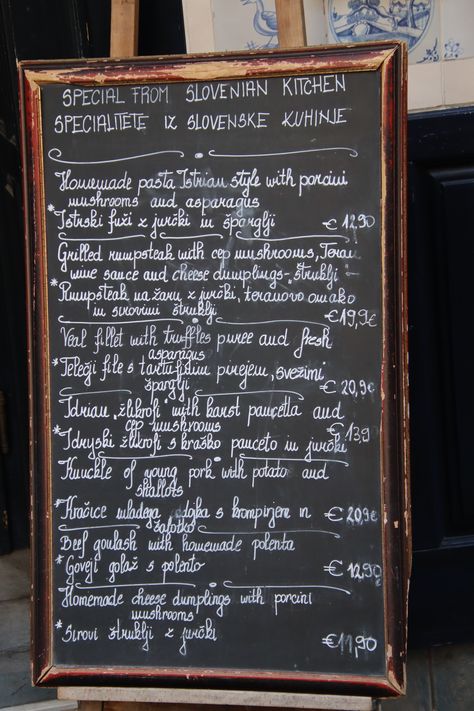 SPECIAL FROM SLOVENIAN KITCHEN
SPECIALITETE IZ SLOVENSKE KUHINJE
Homemade pasta Istrian style with porcini
mushrooms and asparagus
*Istrski fuži z jurčki in šparglji € 12,90
Grilled rumpsteak with cep mushrooms, Teran
wine sauce and cheese dumplings-"štruklji"
*Rumpsteak na žaru z jurčki, teranovo omako
in sirovimi štruklji € 19,9€
Veal fillet with truffles puree and fresh
asparagus
*Telečji file s tartufinim pirejem, svežimi
šparglji € 20,9€
Idrian "žlikrofi" with karst pancetta and
cep mushrooms € 13,9
*Idrijski žlikrofi s kraško panceto in jurčki
Knuckle of young pork with potato and
shallots
*Kračice mladega odojka s krompirjem in € 20,9€
šalotko
Beef goulash with homemade polenta
*Goveji golaž s polento € 12,90
Homemade cheese dumplings with porcini
mushrooms
*Sirovi štruklji z jurčki € 11,90